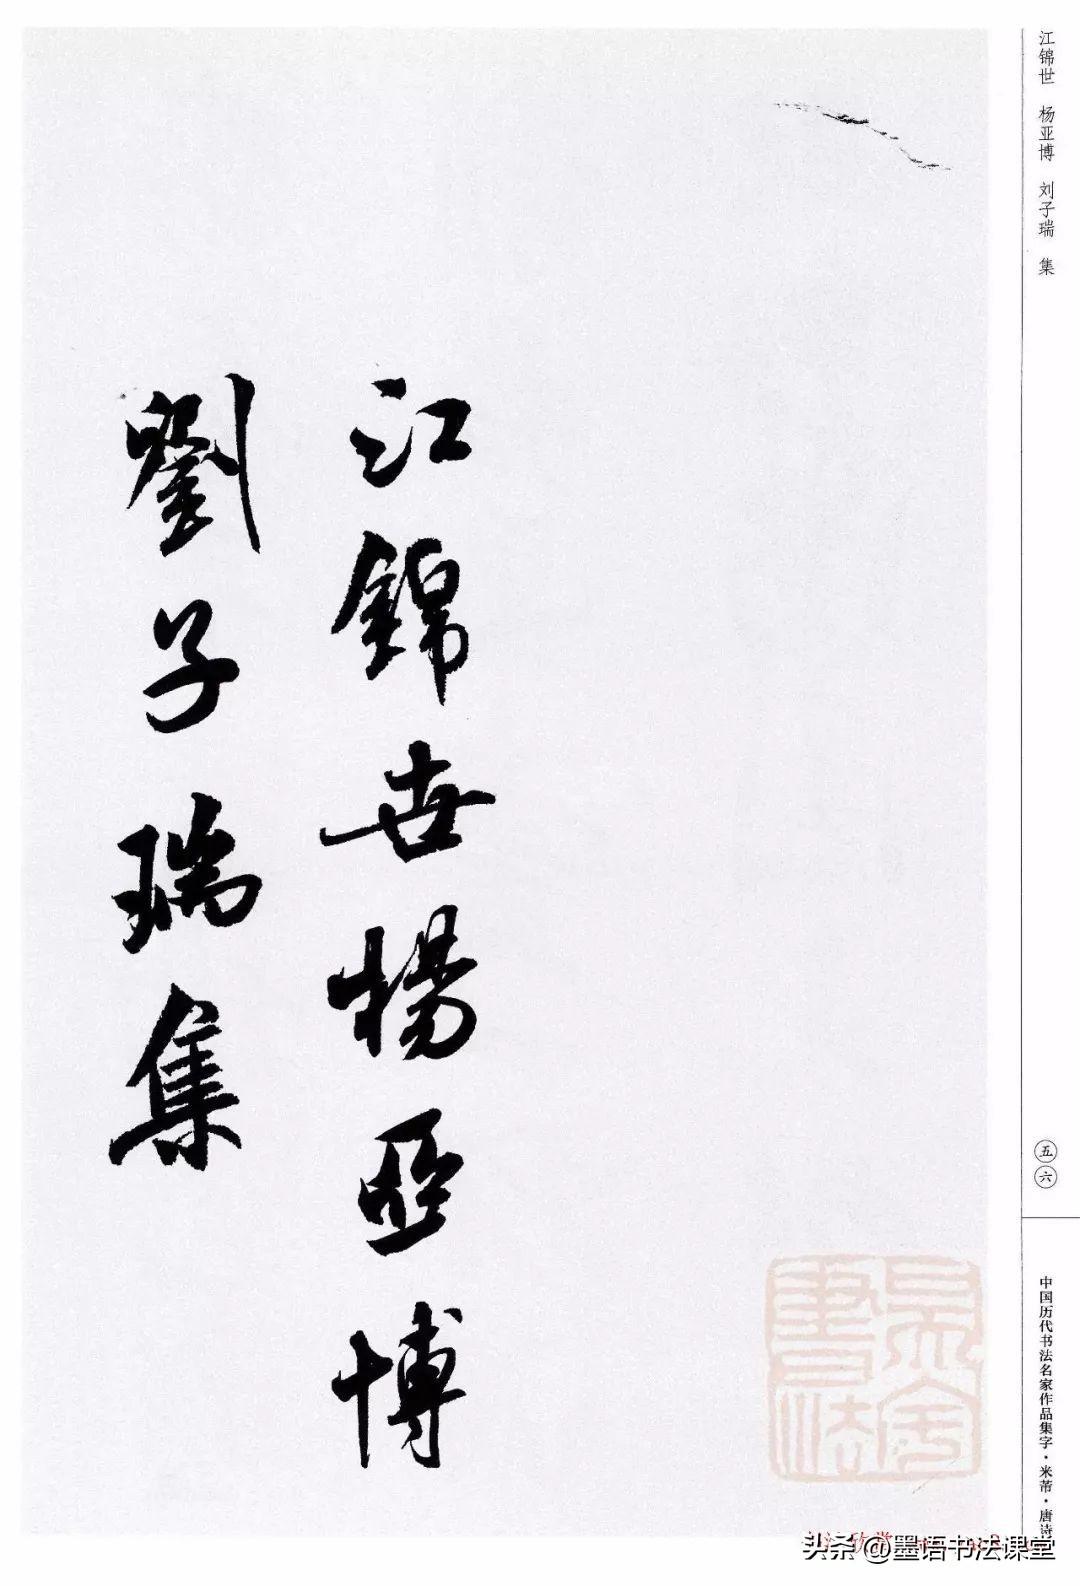 江锦世 杨亚博 刘子瑞 集
江錦世楊亞博
劉子瑞集
五六
中国历代书法名家作品集字·米芾·唐诗
头条@墨语书法课堂